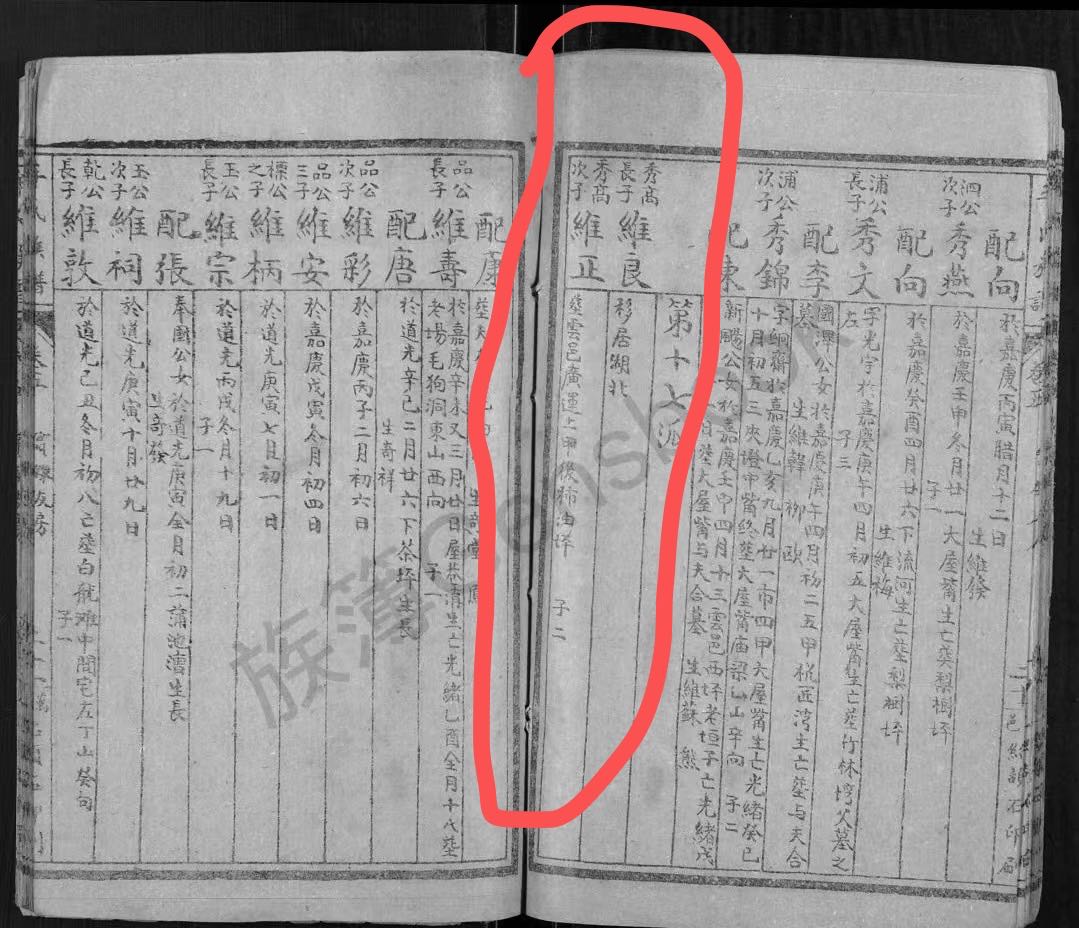 配向
於嘉慶丙寅腊月十二日
生維條
泗公次子
秀燕
於嘉慶壬申冬月廿一大屋觜生亡葵梨樹坪
子一
配向
於嘉慶癸酉四月廿六下流河生亡塟梨樹坪
生維梅
浦公長子
秀文
字光宇於嘉慶庚午四月初五大屋觜生亡塟竹林塆父墓之左
子三
配李
國澤公女於嘉慶庚午四月初二五甲杭西灣生亡塟与夫合墓
生維韓 柳 歐
浦公次子
秀錦
十月初五三夾墱中觜終塟大屋觜庙梁乙山辛向 子二
配東
新颺公女於嘉慶壬申四月十三雲邑西坪老垣子亡光緒戊
日塟大屋觜与夫合墓 生維蘇 熊
第十七派
秀高長子
維良
移居湖北
秀高次子
維正
塟雲邑廣運上甲後柿油坪
子二
配康
品公長子
維壽
於嘉慶辛未又三月廿日屋茶溝生亡光緒乙酉全月十八塟
老場毛狗洞東山西向 子一
配唐
於道光辛巳二月廿六下茶坪生長
生奇祥
品公次子
維彩
於嘉慶丙子二月初六日
品公三子
維安
於嘉慶戊寅冬月初四日
標公之子
維柄
於道光庚寅七月初一日
玉公長子
維宗
於道光丙戌冬月十九日
子一
配張
奉國公女於道光庚寅全月初二蒲池漕生長
生奇發
玉公次子
維祠
於道光庚寅十月廿九日
乾公長子
維敦
於道光己丑冬月初八亡塟白龍灘中間宅左丁山癸向
子一
族簿